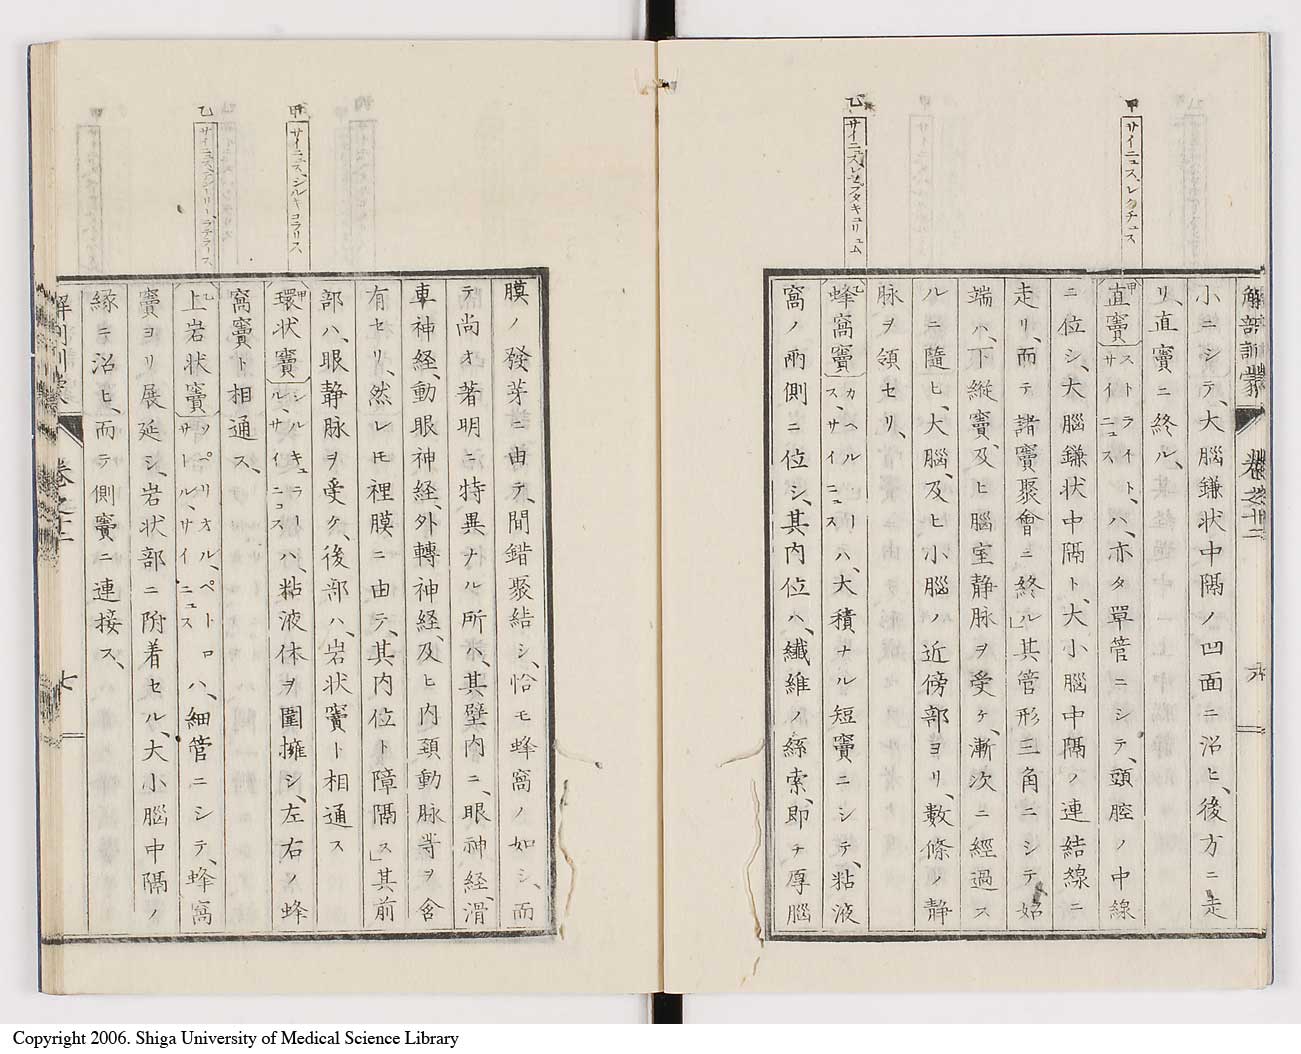 解剖訓蒙 卷之十二 六
甲 サイニュス、レクチュス
乙 サイニス、
小ニシテ、大腦鎌状中隔ノ凹面ニ沿ヒ、後方ニ走
リ、直竇ニ終ル、
甲直竇 ストライト、サイニュス ハ、亦タ單管ニシテ、頭腔ノ中線
ニ位シ、大腦鎌状中隔ト、大小腦中隔ノ連結線ニ
走リ、而テ諸竇聚會ニ終ル、其管形三角ニシテ、始
端ハ、下縦竇、及ヒ腦室静脉ヲ受ケ、漸次ニ經過ス
ルニ隨ヒ、大腦、及ヒ小腦ノ近傍部ヨリ、數條ノ静
脉ヲ領セリ、
乙蜂窩竇 カヘルニュース、サイニュス ハ、大積ナル短竇ニシテ、粘液
窩ノ兩側ニ位シ、其内位ハ、纖維ノ絲索、即チ厚腦
甲 サイニュス、シルキコラリス
乙 サイニュス、
膜ノ發芽ニ由テ、間錯聚結シ、恰モ蜂窩ノ如シ、而
テ尚オ著明ニ特異ナル所ハ、其壁内ニ、眼神経、滑
車神経、動眼神経、外轉神経、及ヒ内頚動脉等ヲ含
有セリ、然レモ裡膜ニ由テ、其内位ト障隔ス」其前
部ハ、眼静脉ヲ受ケ、後部ハ、岩状竇ト相通ス
甲環状竇 シルキュラール、サイニュス ハ、粘液体ヲ圍擁シ、左右ノ蜂
窩竇ト相通ス、
乙上岩状竇 ソペリオル、ペトロサトル、サイニュス ハ、細管ニシテ、蜂窩
竇ヨリ展延シ、岩状部ニ附着セル、大小腦中隔ノ
縁ニ沿ヒ、而テ側竇ニ連接ス、
卷之十二 七
Copyright 2006. Shiga University of Medical Science Library